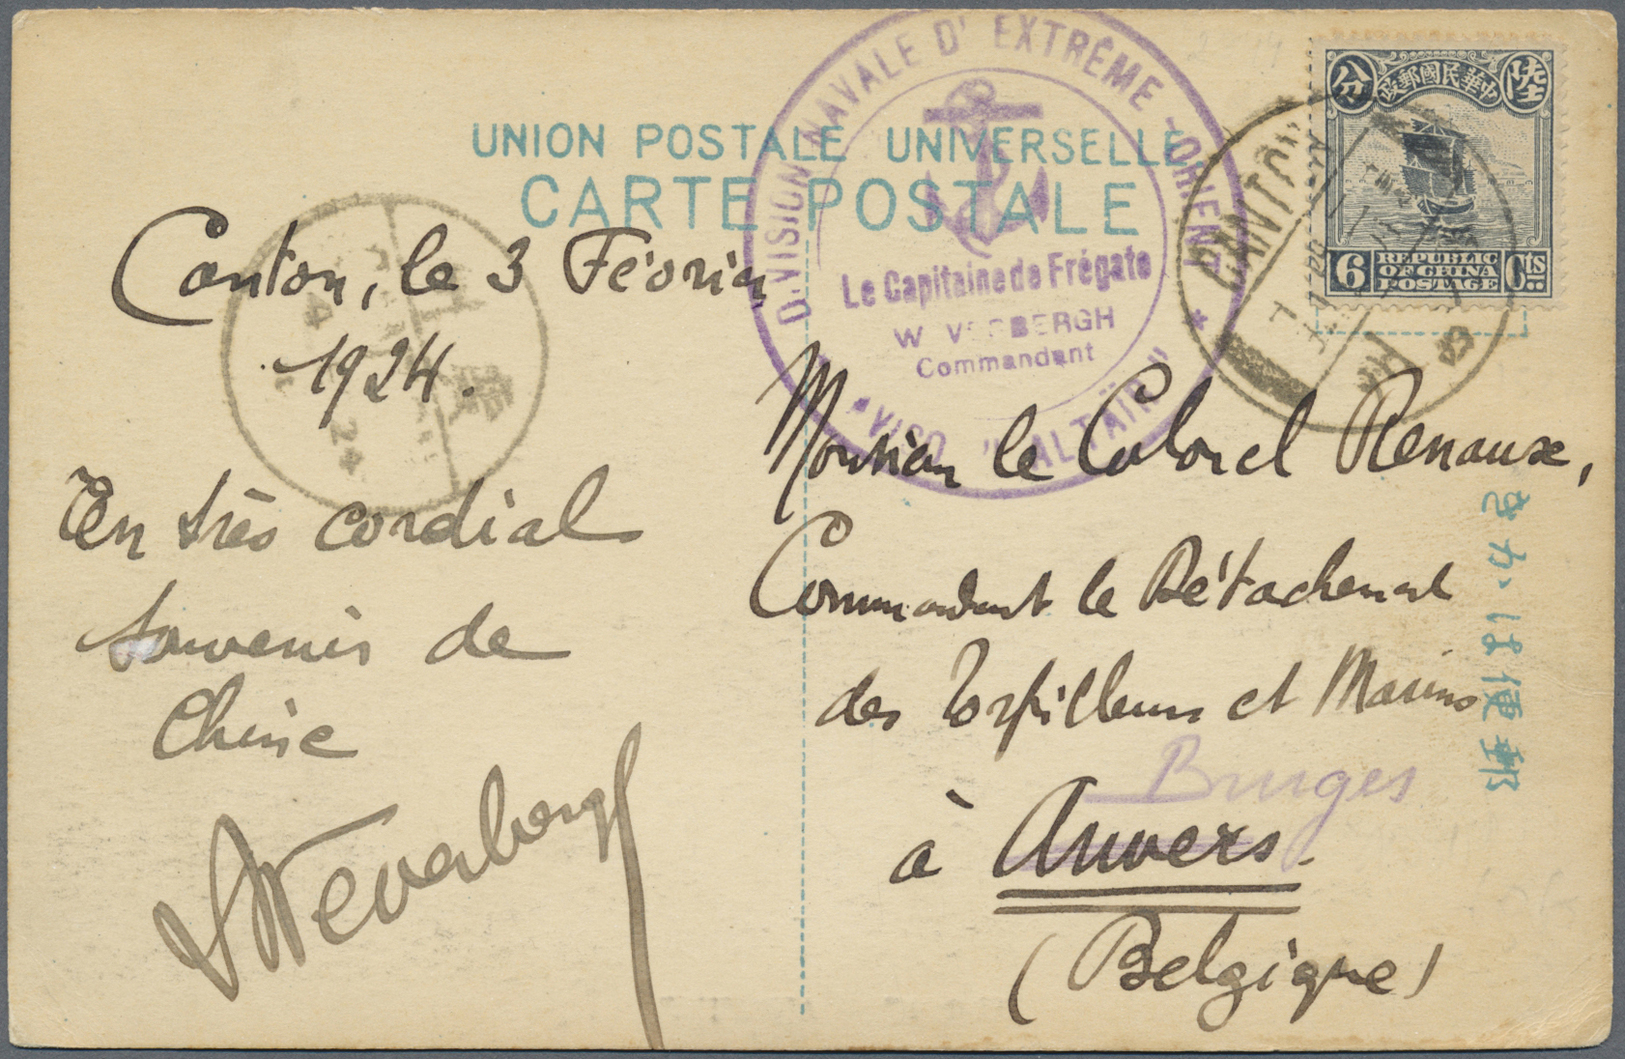 UNION POSTALE UNIVERSELLE
CARTE POSTALE
DIVISION NAVALE D'EXTRÊME-ORIENT
Le Capitaine de Frégate
W V BERGH
Commandant
中華民國郵政
陸
分
6
REPUBLIC
OF CHINA
POSTAGE
Cts
CANTON
24
Canton, le 3 Février
1924.
En très cordial
souvenir de
Chine
Monsieur le Colonel Renaux,
Commandant le Détachement
des Torpilleurs et Marins
Bruges
à Anvers.
(Belgique)
きかは便郵